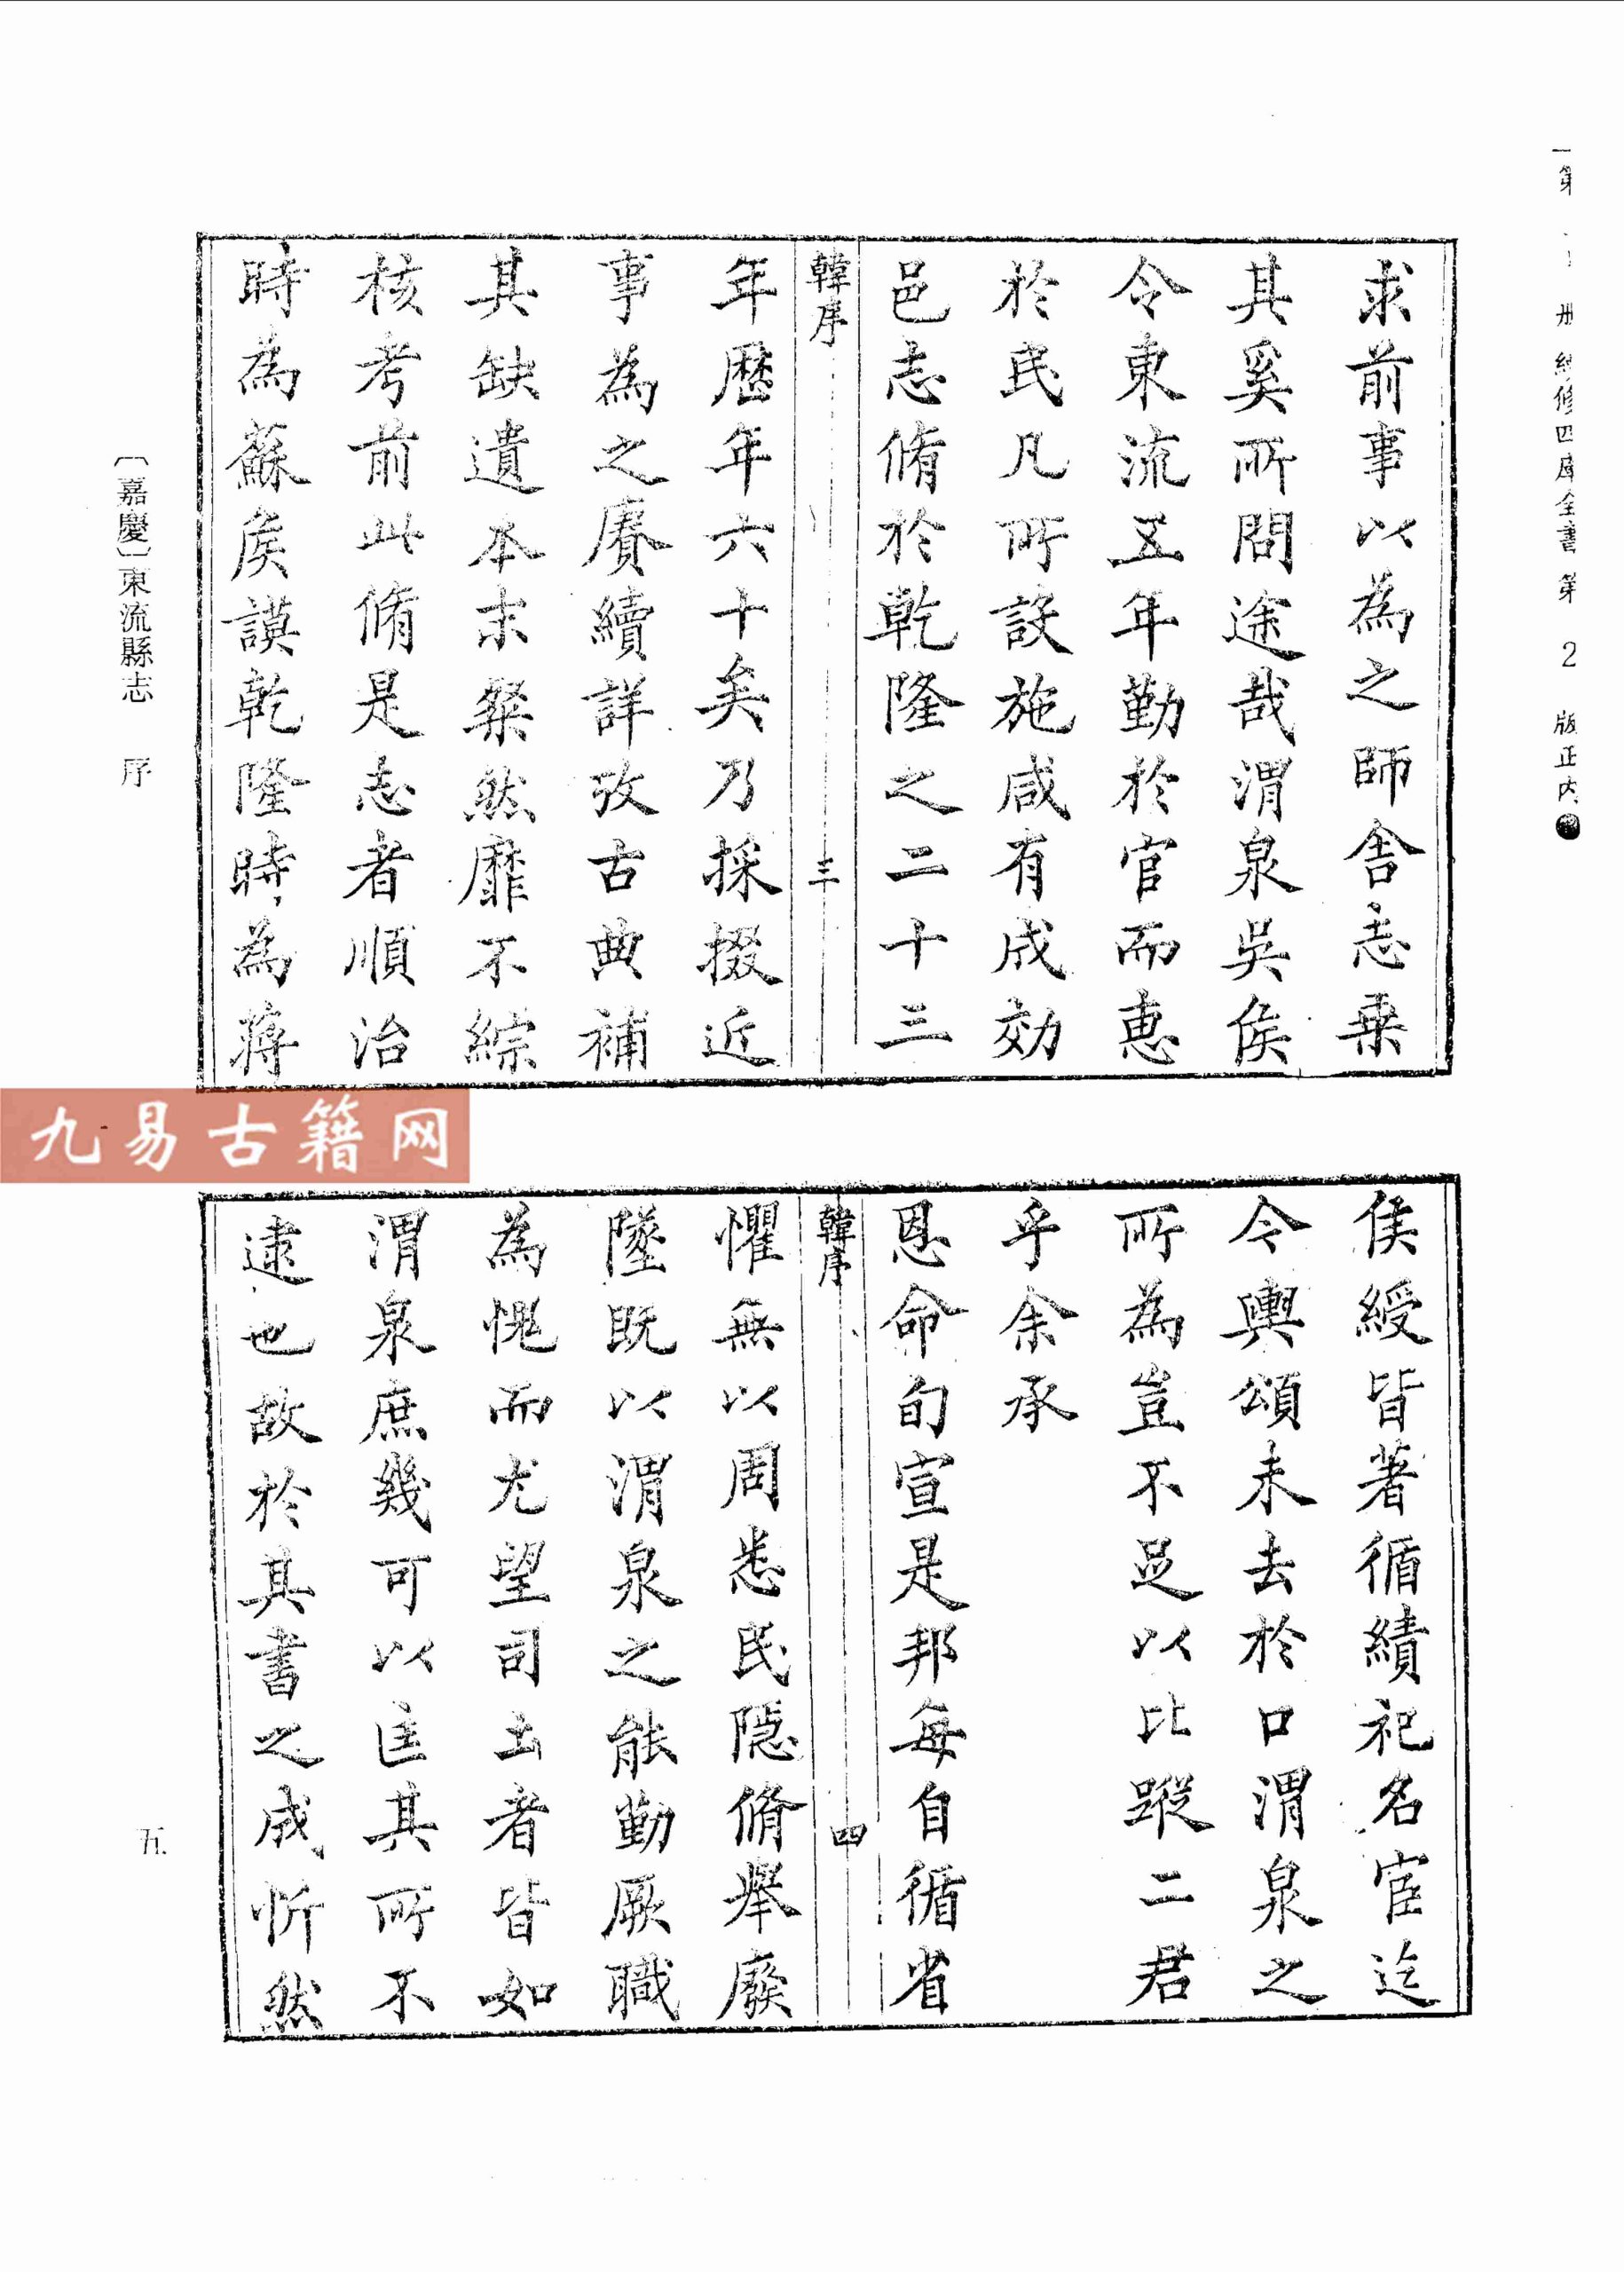 求前事以為之師舍志乗
其奚所問途哉渭泉吳侯
令東流五年勤於官而恵
於民凡所設施咸有成効
邑志脩於乾隆之二十三
韓序
三
年歷年六十矣乃採掇近
事為之賡續詳攷古典補
其缺遺本末粲然靡不綜
核考前此脩是志者順治
時為蘇矦謨乾隆時為蔣
侯綬皆著循績祀名宦迄
今輿頌未去於口渭泉之
所為豈不足以比蹤二君
乎余承
恩命旬宣是邦每自循省
韓序
四
懼無以周悉民隱脩舉廢
墜既以渭泉之能勤厥職
為愧而尤望司土者皆如
渭泉庶幾可以匡其所不
逮也故於其書之成忻然
〔嘉慶〕東流縣志 序
五
修四庫全書 第 2 版正内
九易古籍网